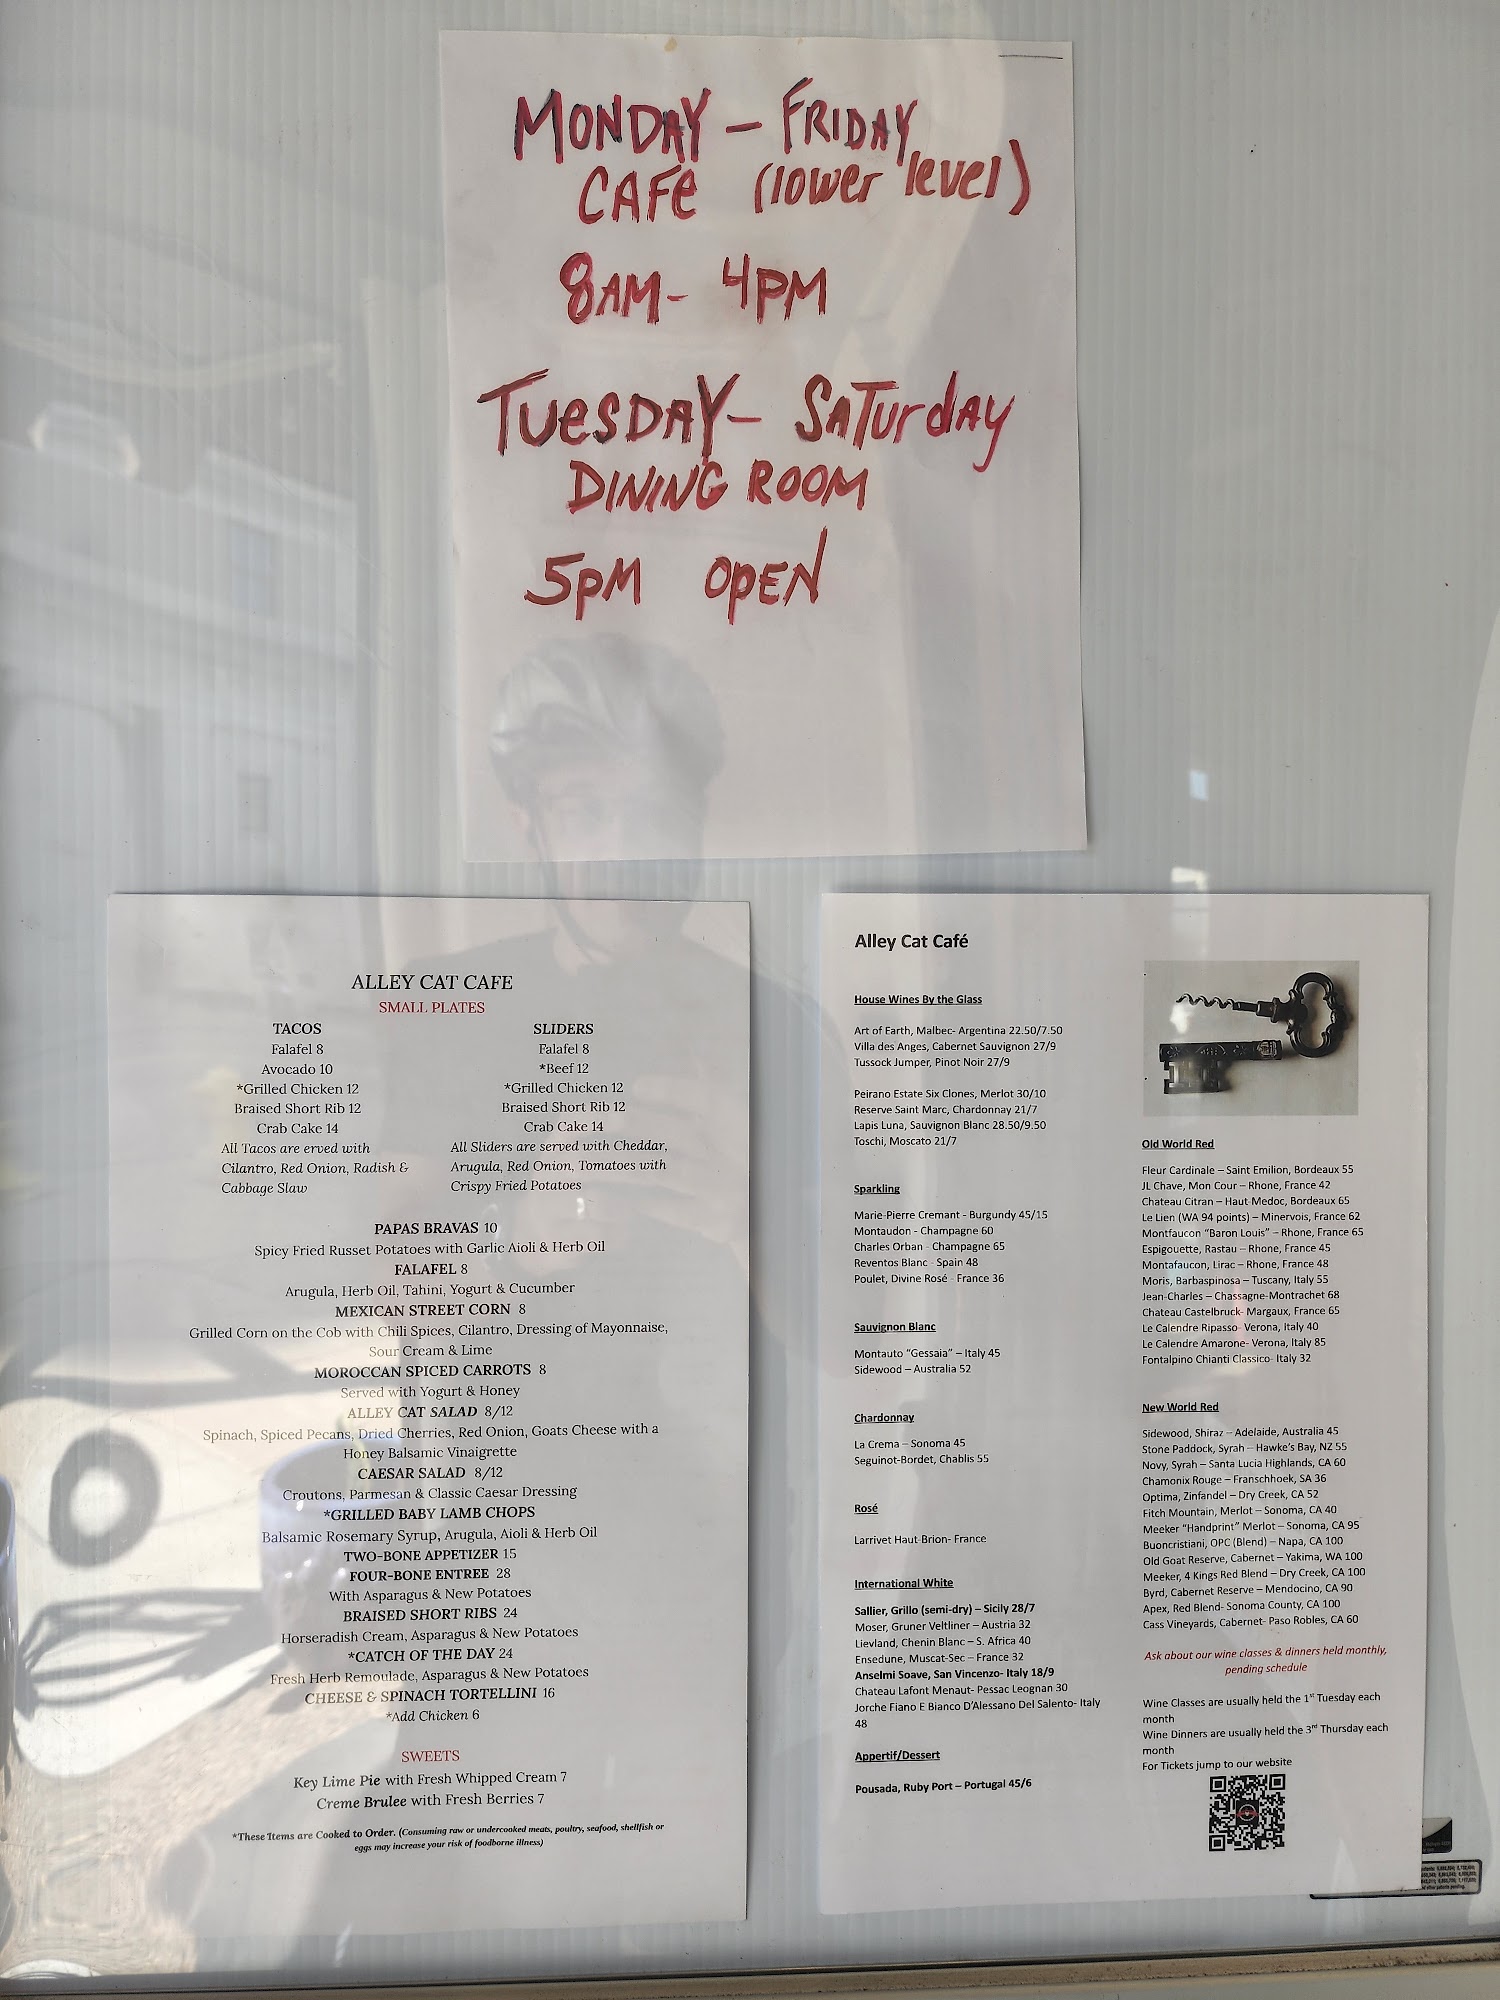 MONDAY – FRIDAY
CAFe (lower level)
8AM- 4PM
TUesDAY– SATurday
DINING ROOM
5PM OPEN
ALLEY CAT CAFE
SMALL PLATES
TACOS
Falafel 8
Avocado 10
*Grilled Chicken 12
Braised Short Rib 12
Crab Cake 14
All Tacos are erved with
Cilantro, Red Onion, Radish &
Cabbage Slaw
SLIDERS
Falafel 8
*Beef 12
*Grilled Chicken 12
Braised Short Rib 12
Crab Cake 14
All Sliders are served with Cheddar,
Arugula, Red Onion, Tomatoes with
Crispy Fried Potatoes
PAPAS BRAVAS 10
Spicy Fried Russet Potatoes with Garlic Aioli & Herb Oil
FALAFEL 8
Arugula, Herb Oil, Tahini, Yogurt & Cucumber
MEXICAN STREET CORN 8
Grilled Corn on the Cob with Chili Spices, Cilantro, Dressing of Mayonnaise,
Sour Cream & Lime
MOROCCAN SPICED CARROTS 8
Served with Yogurt & Honey
ALLEY CAT SALAD 8/12
Spinach, Spiced Pecans, Dried Cherries, Red Onion, Goats Cheese with a
Honey Balsamic Vinaigrette
CAESAR SALAD 8/12
Croutons, Parmesan & Classic Caesar Dressing
*GRILLED BABY LAMB CHOPS
Balsamic Rosemary Syrup, Arugula, Aioli & Herb Oil
TWO-BONE APPETIZER 15
FOUR-BONE ENTREE 28
With Asparagus & New Potatoes
BRAISED SHORT RIBS 24
Horseradish Cream, Asparagus & New Potatoes
*CATCH OF THE DAY 24
Fresh Herb Remoulade, Asparagus & New Potatoes
CHEESE & SPINACH TORTELLINI 16
*Add Chicken 6
SWEETS
Key Lime Pie with Fresh Whipped Cream 7
Creme Brulee with Fresh Berries 7
*These Items are Cooked to Order. (Consuming raw or undercooked meats, poultry, seafood, shellfish or
eggs may increase your risk of foodborne illness)
Alley Cat Café
House Wines By the Glass
Art of Earth, Malbec- Argentina 22.50/7.50
Villa des Anges, Cabernet Sauvignon 27/9
Tussock Jumper, Pinot Noir 27/9
Peirano Estate Six Clones, Merlot 30/10
Reserve Saint Marc, Chardonnay 21/7
Lapis Luna, Sauvignon Blanc 28.50/9.50
Toschi, Moscato 21/7
Sparkling
Marie-Pierre Cremant - Burgundy 45/15
Montaudon - Champagne 60
Charles Orban - Champagne 65
Reventos Blanc - Spain 48
Poulet, Divine Rosé - France 36
Sauvignon Blanc
Montauto “Gessaia” – Italy 45
Sidewood – Australia 52
Chardonnay
La Crema – Sonoma 45
Seguinot-Bordet, Chablis 55
Rosé
Larrivet Haut-Brion- France
International White
Sallier, Grillo (semi-dry) – Sicily 28/7
Moser, Gruner Veltliner – Austria 32
Lievland, Chenin Blanc – S. Africa 40
Ensedune, Muscat-Sec – France 32
Anselmi Soave, San Vincenzo- Italy 18/9
Chateau Lafont Menaut- Pessac Leognan 30
Jorche Fiano E Bianco D’Alessano Del Salento- Italy
48
Appertif/Dessert
Pousada, Ruby Port – Portugal 45/6
Old World Red
Fleur Cardinale – Saint Emilion, Bordeaux 55
JL Chave, Mon Cour – Rhone, France 42
Chateau Citran – Haut-Medoc, Bordeaux 65
Le Lien (WA 94 points) – Minervois, France 62
Montfaucon “Baron Louis” – Rhone, France 65
Espigouette, Rastau – Rhone, France 45
Montafaucon, Lirac – Rhone, France 48
Moris, Barbaspinosa – Tuscany, Italy 55
Jean-Charles – Chassagne-Montrachet 68
Chateau Castelbruck- Margaux, France 65
Le Calendre Ripasso- Verona, Italy 40
Le Calendre Amarone- Verona, Italy 85
Fontalpino Chianti Classico- Italy 32
New World Red
Sidewood, Shiraz – Adelaide, Australia 45
Stone Paddock, Syrah – Hawke’s Bay, NZ 55
Novy, Syrah – Santa Lucia Highlands, CA 60
Chamonix Rouge – Franschhoek, SA 36
Optima, Zinfandel – Dry Creek, CA 52
Fitch Mountain, Merlot – Sonoma, CA 40
Meeker “Handprint” Merlot – Sonoma, CA 95
Buoncristiani, OPC (Blend) – Napa, CA 100
Old Goat Reserve, Cabernet – Yakima, WA 100
Meeker, 4 Kings Red Blend – Dry Creek, CA 100
Byrd, Cabernet Reserve – Mendocino, CA 90
Apex, Red Blend- Sonoma County, CA 100
Cass Vineyards, Cabernet- Paso Robles, CA 60
Ask about our wine classes & dinners held monthly,
pending schedule
Wine Classes are usually held the 1st Tuesday each
month
Wine Dinners are usually held the 3rd Thursday each
month
For Tickets jump to our website